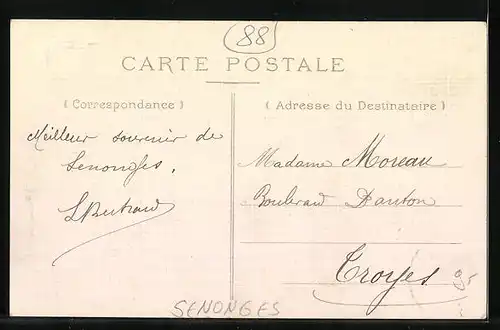 88
CARTE POSTALE
( Correspondance )
( Adresse du Destinataire )
Meilleur souvenir de
Senonges.
LBertrand
Madame Moreau
Boulevard Danton
Troyes
SENONGES